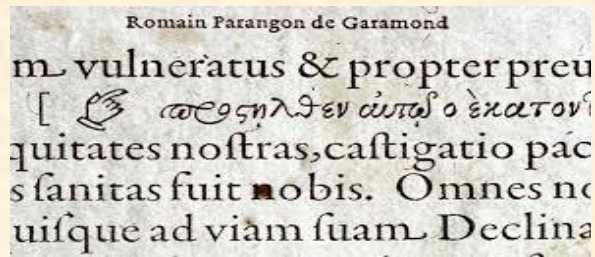 Romain Parangon de Garamond
m vulneratus & propter preu
[ ☞ προσῆλθεν αὐτῷ ὁ ἑκατον
quitates noſtras, caſtigatio pac
s ſanitas fuit nobis. Omnes no
uiſque ad viam ſuam Declina